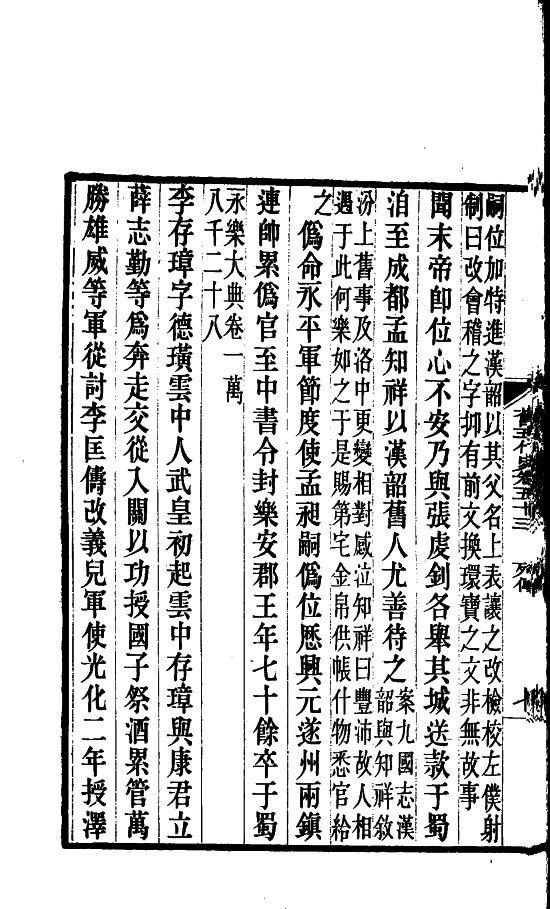 嗣位加特進漢韶以其父名上表讓之改檢校左僕射
制曰改會稽之字抑有前文換環寶之文非無故事
聞末帝卽位心不安乃與張虔釗各舉其城送款于蜀
洎至成都孟知祥以漢韶舊人尤善待之
案九國志漢
韶與知祥敘
汾上舊事及洛中更變相對感泣知祥曰豐沛故人相
遇于此何樂如之于是賜第宅金帛供帳什物悉官給
之
僞命永平軍節度使孟昶嗣僞位厯興元遂州兩鎭
連帥累僞官至中書令封樂安郡王年七十餘卒于蜀
永樂大典卷一萬
八千二十八
李存璋字德璜雲中人武皇初起雲中存璋與康君立
薛志勤等爲奔走交從入關以功授國子祭酒累管萬
勝雄威等軍從討李匡儔改義兒軍使光化二年授澤
舊五代史卷五十三
列傳